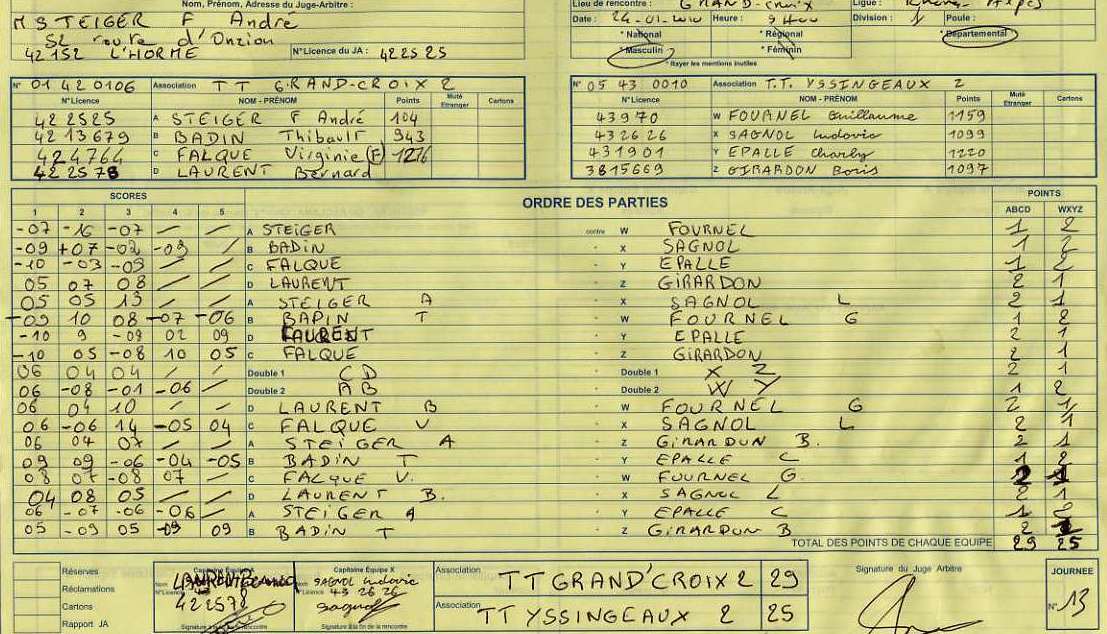 Nom, Prénom, Adresse du Juge-Arbitre :
M STEIGER F André
52 route d'Onzion
42152 L'HORME N°Licence du JA : 422525
Lieu de rencontre : GRAND-CROIX Ligue :
Date : 24-01- Heure : 9H00 Division : 1 Poule :
* National * Régional * Départemental
* Masculin * Féminin
* Rayer les mentions inutiles
N° 01420106 Association TT GRAND-CROIX 2
N°Licence NOM - PRÉNOM Points Muté Etranger Cartons
422525 A STEIGER F André 104
4213679 B BADIN Thibault 943
424764 C FALQUE Virginie (F) 1276
422578 D LAURENT Bernard
N° 05 43 0010 Association T.T. YSSINGEAUX 2
N°Licence NOM - PRÉNOM Points Muté Etranger Cartons
43970 W FOURNEL Guillaume 1159
432626 X SAGNOL Ludovic 1099
431901 Y EPALLE Charly 1220
3815669 Z GIRARDON Boris 1097
SCORES ORDRE DES PARTIES POINTS
1 2 3 4 5 ABCD WXYZ
-07 -16 -07 / / A STEIGER contre W FOURNEL 1 2
-09 +07 -02 -09 / B BADIN - X SAGNOL 1 2
-10 -03 -09 / / C FALQUE - Y EPALLE 1 2
05 07 08 / / D LAURENT - Z GIRARDON 2 1
05 05 13 / / A STEIGER A - X SAGNOL L 2 1
-09 10 08 -07 -06 B BADIN T - W FOURNEL G 1 2
-10 9 -09 02 09 D LAURENT - Y EPALLE 2 1
-10 05 -08 10 05 C FALQUE - Z GIRARDON 2 1
06 04 04 / / Double 1 CD - Double 1 X Z 2 1
06 -08 -01 -06 / Double 2 AB - Double 2 W Y 1 2
06 04 10 / / D LAURENT B - W FOURNEL G 2 1
06 -06 14 -05 04 C FALQUE V - X SAGNOL L 2 1
06 04 07 / / A STEIGER A - Z GIRARDON B. 2 1
09 09 -06 -04 -05 B BADIN T - Y EPALLE C 1 2
08 07 -08 07 / C FALQUE V. - W FOURNEL G. 2 1
04 08 05 / / D LAURENT B. - X SAGNOL L 2 1
06 -07 -06 -06 / A STEIGER A - Y EPALLE C 1 2
05 -09 05 -09 09 B BADIN T - Z GIRARDON B 2 1
TOTAL DES POINTS DE CHAQUE EQUIPE 29 25
Réserves
Réclamations
Cartons
Rapport JA
Capitaine Equipe A
Nom LAURENT Bernard
N°Licence
422578
Signature à la fin de la rencontre
Capitaine Equipe X
Nom SAGNOL Ludovic
N°Licence 43 26 26
Sagnol
Signature à la fin de la rencontre
Association TT GRAND'CROIX 2 29
Association TT YSSINGEAUX 2 25
Signature du Juge Arbitre
JOURNEE
N° 13